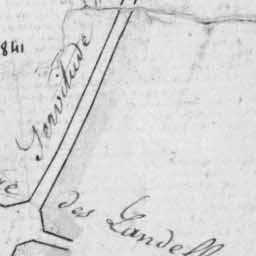 1841
Servitude
des Landell